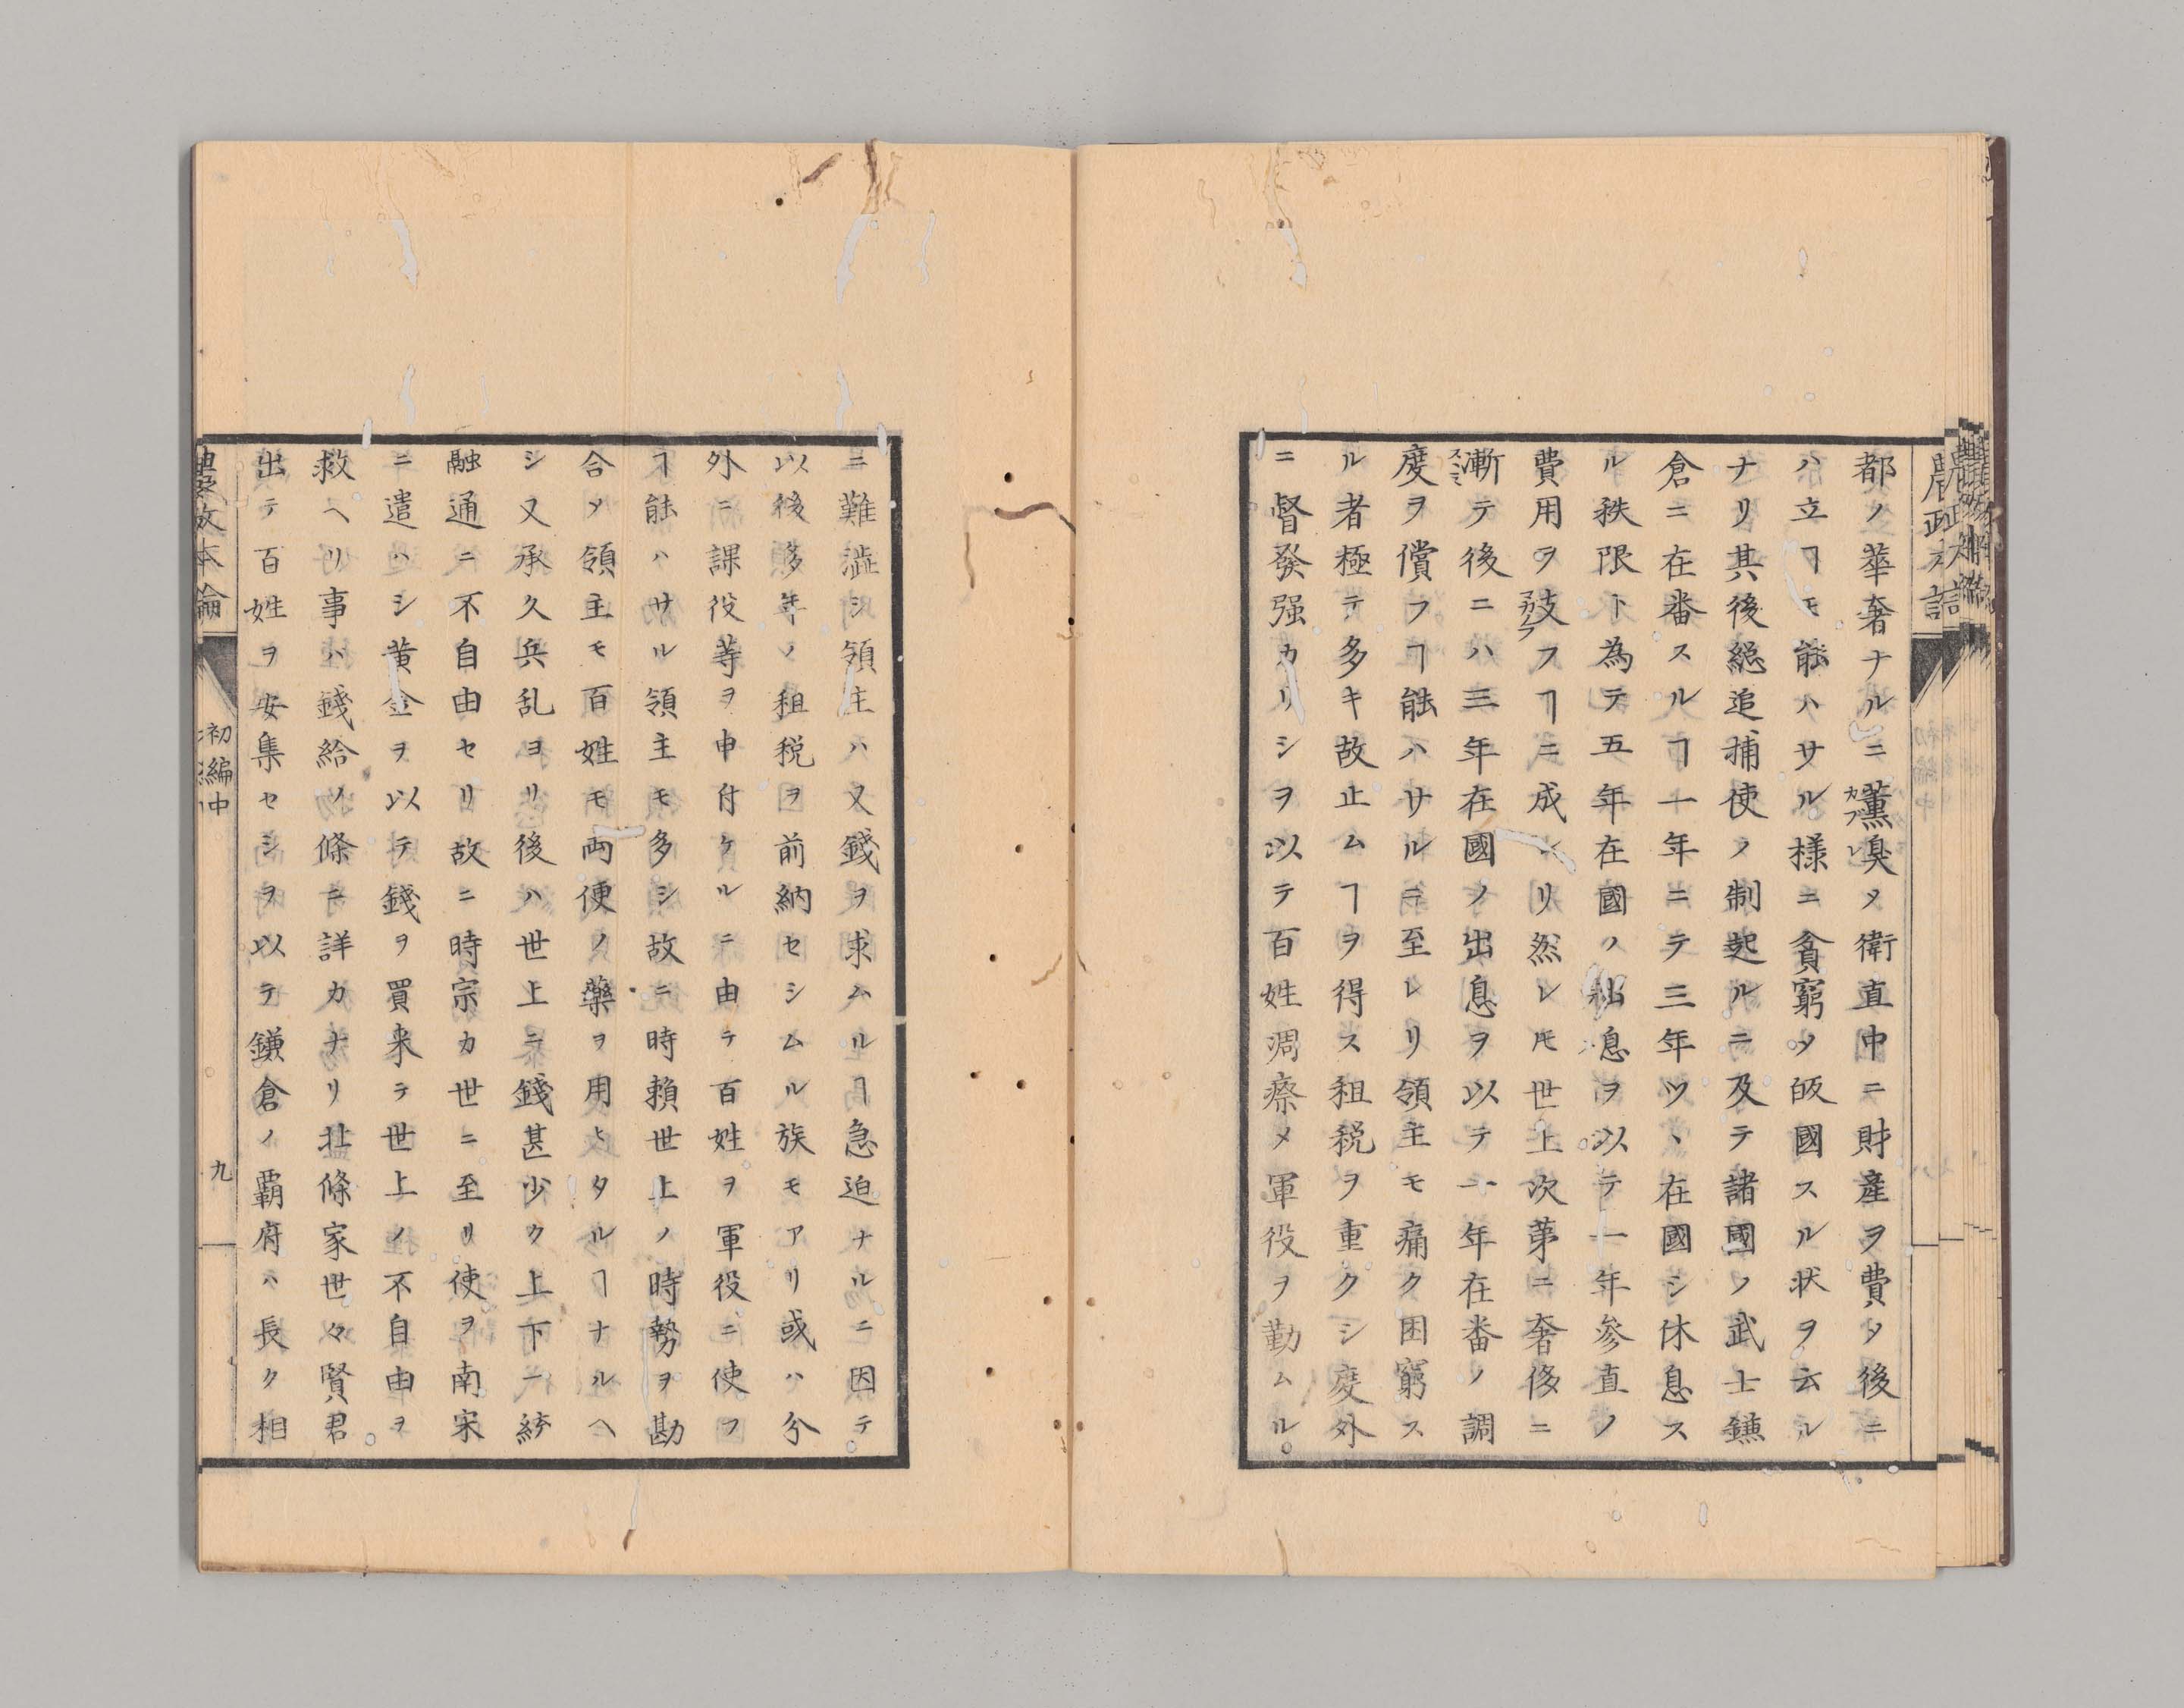 都ノ華奢ナルニ薫臭メ衛直中ニ財産ヲ費シ後ニ
ハ立ヿモ能ハサル様ニ貧窮シ皈國スル状ヲ云ル
ナリ其後縂追捕使ノ制起ルニ及テ諸國ノ武士鎌
倉ニ在番スルヿ一年ニテ三年ツヽ在國シ休息ス
ル秩限ト為テ五年在國ノ出息ヲ以テ一年参直ノ
費用ヲ支フヿニ成レリ然レㇳモ世上次第ニ奢侈ニ
漸テ後ニハ三年在國ノ出息ヲ以テ一年在番ノ調
度ヲ償フヿ能ハサルニ至レリ領主モ痛ク困窮ス
ル者極テ多キ故止ムヿヲ得ス租税ヲ重クシ度外
ニ督發强カリシヲ以テ百姓凋瘵メ軍役ヲ勤ムル
ニ難澁シ領主ハ又錢ヲ求ムルヿ急迫ナルニ因テ
以後多年ノ租税ヲ前納セシムル族モアリ或ハ分
外ニ課役等ヲ申付ケルニ由テ百姓ヲ軍役ニ使フ
ヿ能ハサル領主モ多シ故ニ時賴世上ノ時勢ヲ勘
合メ領主モ百姓モ両便ノ藥ヲ用ヒタルヿナルヘ
シ又承久兵乱ヨリ後ハ世上ニ錢甚少ク上下一統
融通ニ不自由セリ故ニ時宗カ世ニ至リ使ヲ南宋
ニ遣ハシ黄金ヲ以テ錢ヲ買来テ世上ノ不自由ヲ
救ヘリ事ハ錢給ノ條ニ詳カナリ北條家世々賢君
出テ百姓ヲ安集セシヲ以テ鎌倉ノ覇府ハ長ク相
農政本論
初編中
九